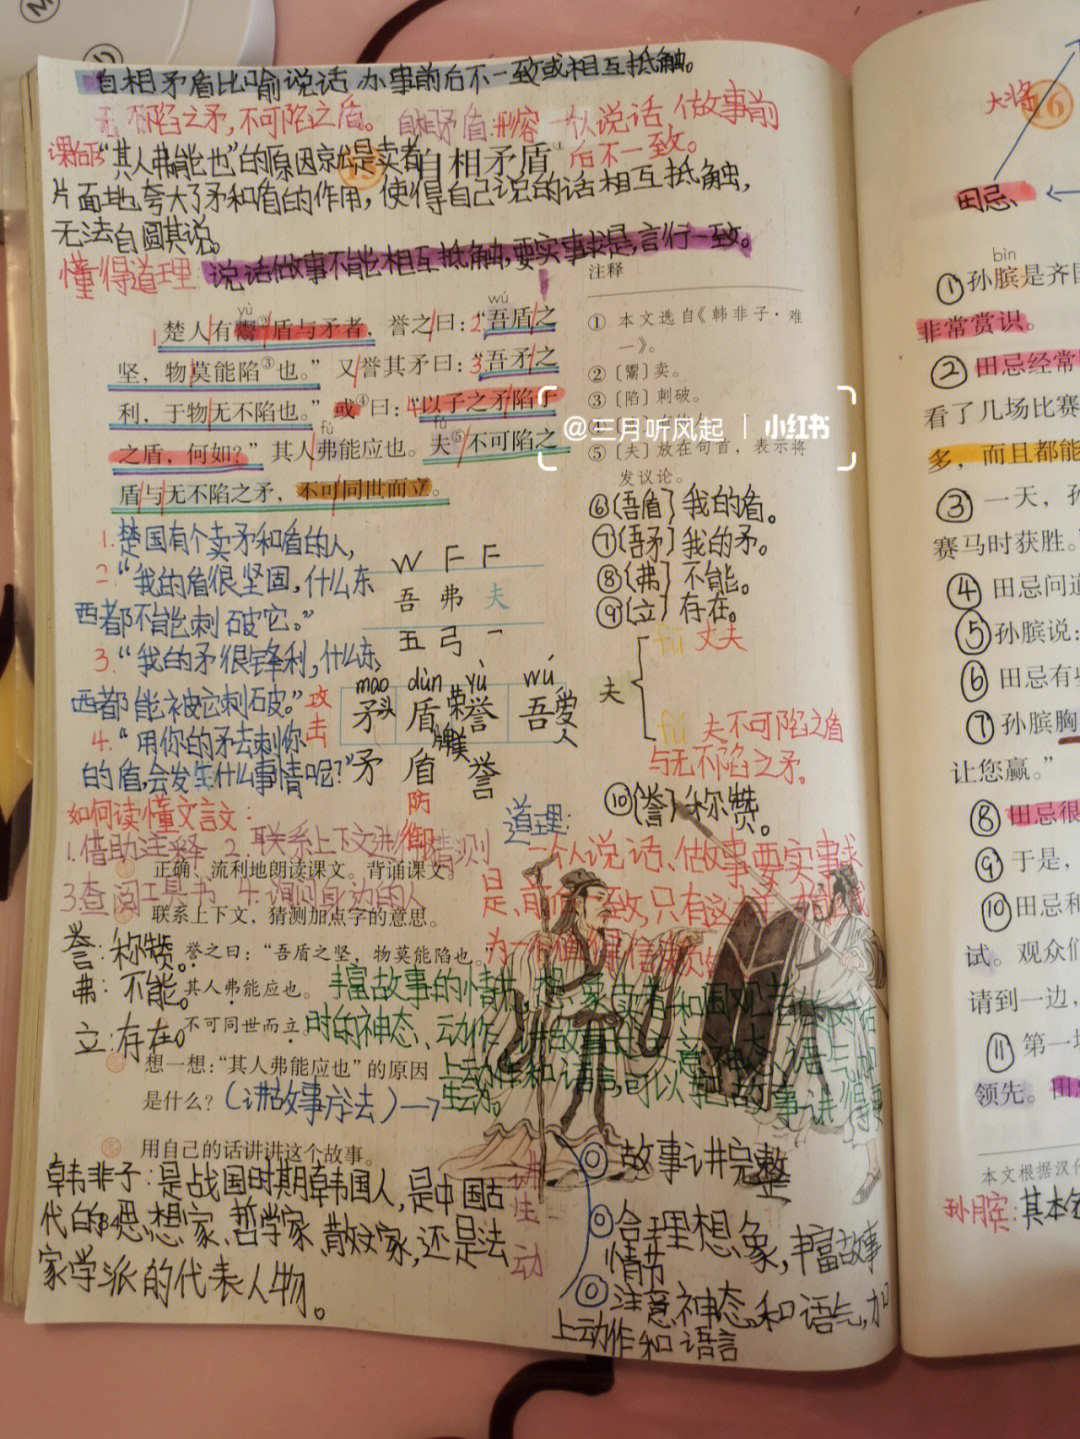 自相矛盾比喻说话 办事前后不一致或相互抵触。
无不陷之矛,不可陷之盾。
自相矛盾:形容一个人说话、做故事前
后不一致。
自相矛盾
“其人弗能也”的原因就是卖者
片面地夸大了矛和盾的作用,使得自己说的话相互抵触,
无法自圆其说。
懂得道理 说话做事不能相互抵触,要实事求是,言行一致。
yù wú
1楚人有鬻②盾与矛者,誉之曰:2“吾盾之
坚,物莫能陷③也。”又誉其矛曰:3“吾矛之
利,于物无不陷也。”或④曰:4“以子之矛陷子
fú fú
之盾,何如?”其人弗能应也。夫⑤不可陷之
盾与无不陷之矛,不可同世而立。
注释
① 本文选自《韩非子·难
一》。
②〔鬻〕卖。
③〔陷〕刺破。
⑤〔夫〕放在句首,表示将
发议论。
⑥〔吾盾〕我的盾。
⑦〔吾矛〕我的矛。
⑧〔弗〕不能。
⑨〔立〕存在。
夫
fū 丈夫
fú 夫不可陷之盾
与无不陷之矛。
⑩〔誉〕称赞。
1.楚国有个卖矛和盾的人,
2.“我的盾很坚固,什么东
西都不能刺破它。”
3.“我的矛很锋利,什么东
西都能被它刺破。”
4.“用你的矛去刺你
的盾,会发生什么事情呢?”
W F F
吾 弗 夫
五 弓 一
mao dùn yù wú
矛 盾 誉 吾
矛 盾 誉
攻
击
防
御
如何读懂文言文:
1.借助注释 2.联系上下文进行猜测
3.查阅工具书 4.询问身边的人
正确、流利地朗读课文。背诵课文。
联系上下文,猜测加点字的意思。
誉:称赞。 誉之曰:“吾盾之坚,物莫能陷也。”
弗:不能。 其人弗能应也。
立:存在。 不可同世而立。
想一想:“其人弗能应也”的原因
是什么?(讲故事方法)→
用自己的话讲讲这个故事。
道理:
一个人说话、做故事要实事求
是、前后一致,只有这样才
丰富故事的情节,想象卖者和围观
时的神态、动作,讲故事时
上动作和语言,可以把故事讲得更
生动。
韩非子:是战国时期韩国人,是中国古
代的思想家、哲学家、散文家,还是法
家学派的代表人物。
84
讲
生
动
◎故事讲完整
◎合理想象,丰富故事
情节
◎注意神态和语气,加
上动作和语言
@三月听风起 | 小红书
大将 16
田忌
bìn
①孙膑是齐国
非常赏识。
②田忌经常
看了几场比赛
多,而且都能
③一天,孙
赛马时获胜。
④田忌问道
⑤孙膑说:
⑥田忌有些
⑦孙膑胸
让您赢。”
⑧田忌很
⑨于是,
⑩田忌和
试。观众们
请到一边,
⑪第一场
领先。田忌
本文根据汉代
孙膑:其本